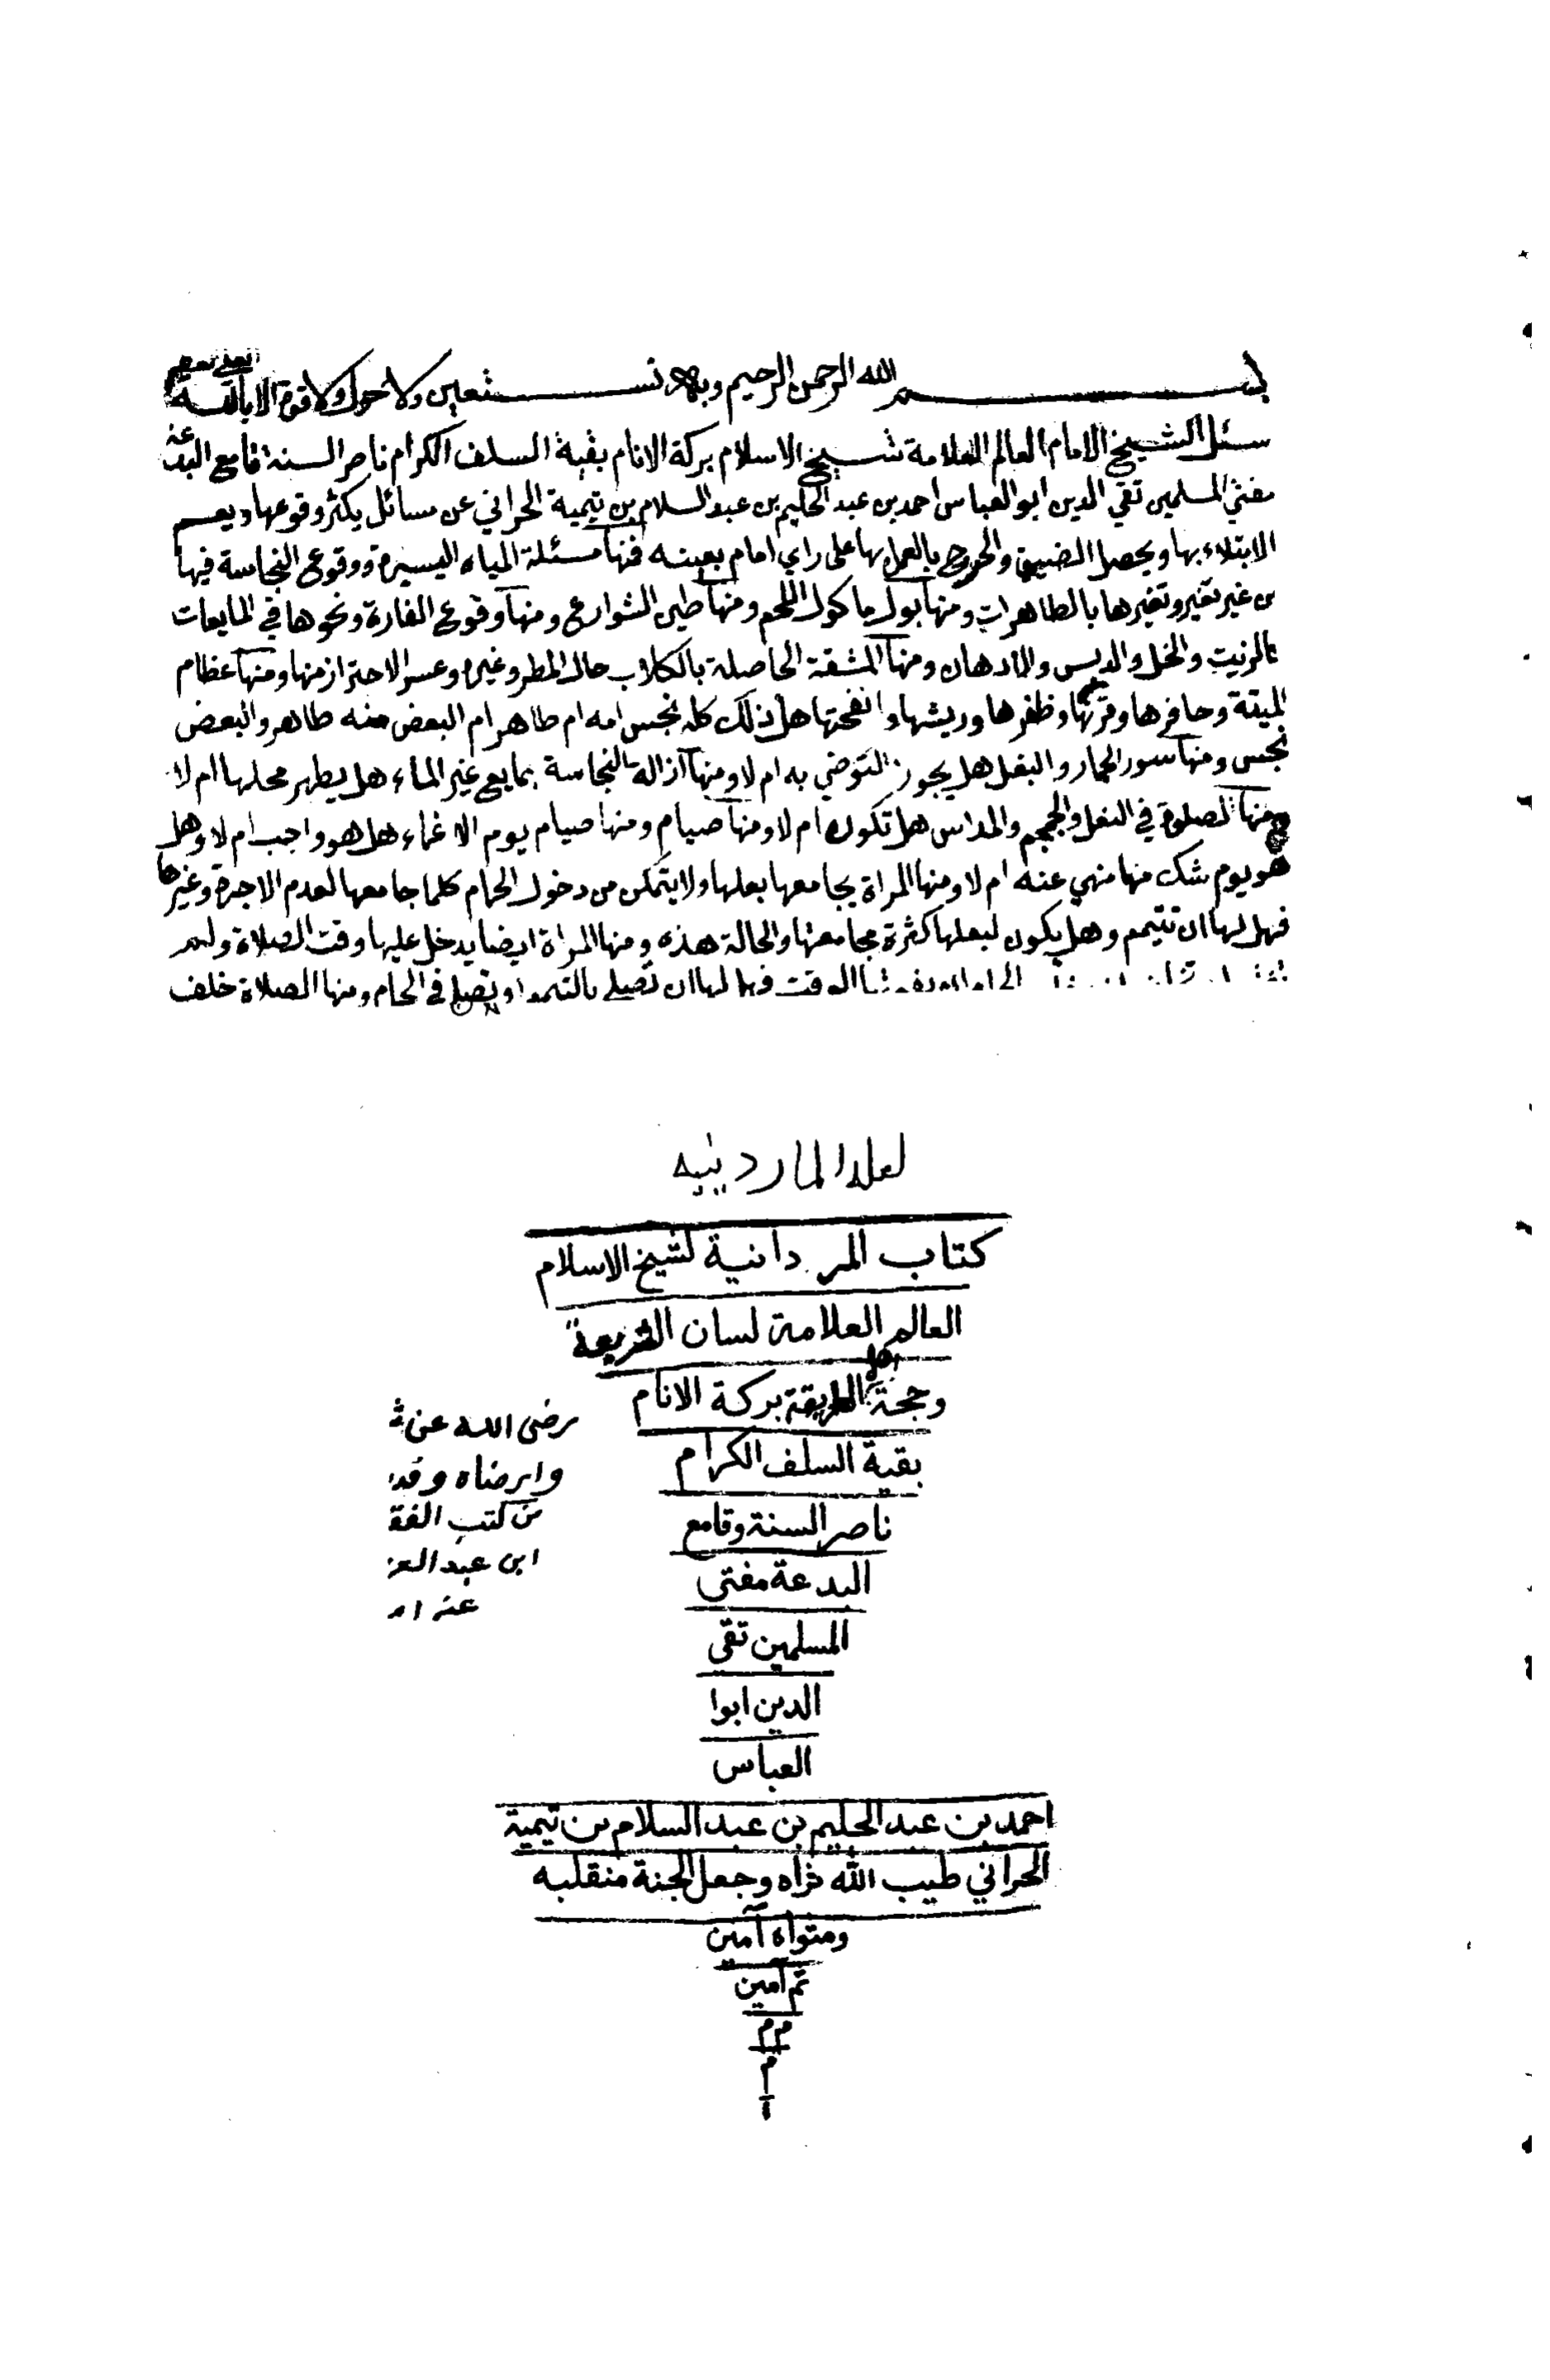 بسم الله الرحمن الرحيم وبه نستعين ولا حول ولا قوة الا بالله العلي العظيم
سئل الشيخ الامام العالم العلامة شيخ الاسلام بركة الانام بقية السلف الكرام ناصر السنة قامع البدعة
مفتي المسلمين تقي الدين ابو العباس احمد بن عبد الحليم بن عبد السلام بن تيمية الحراني عن مسائل يكثر وقوعها ويعسم
الابتلاء بها ويحصل الضيق والحرج بالعمل بها على راي امام بعينه فمنها مسئلة المياه اليسيرة ووقوع النجاسة فيها
من غير تغير وتغيرها بالطاهرات ومنها بول ما كول اللحم ومنها طين الشوارع ومنها وقوع الفارة ونحوها في المايعات
كالزيت والخل والدبس والادهان ومنها المشقة الحاصلة بالكلاب حال المطر وغيره وعسر الاحتراز منها ومنها عظام
الميتة وحافرها وقرنها وظفرها وريشها وانفحتها هل ذلك كله نجس امه ام طاهر ام البعض منه طاهر والبعض
نجس ومنها سور الحمار والبغل هل يجوز التوضي به ام لا ومنها ازالة النجاسة بمايع غير الماء هل يطهر محلها ام لا
ومنها الصلوة في النعل والجمجم والمداس هل تكره ام لا ومنها صيام ومنها صيام يوم الاغماء هل هو واجب ام لا وهل
هو يوم شك منها منهي عنه ام لا ومنها المراة يجامعها بعلها ولا يتمكن من دخول الحمام كلما جامعها لعدم الاجرة وغيرها
فهل لها ان تتيمم وهل يكون لبعلها كثرة مجامعتها والحالة هذه ومنها المراة ايضا يدخل عليها وقت الصلاة ولم
الوقت فهل لها ان تصلي بالتيمم او تصلي في الحمام ومنها الصلاة خلف
لعله الماردينيه
كتاب المردانية لشيخ الاسلام
العالم العلامة لسان الشريعة
وحجة اهل الطريقة بركة الانام
بقية السلف الكرام
ناصر السنة وقامع
البدعة مفتى
المسلمين تقى
الدين ابوا
العباس
احمد بن عبد الحليم بن عبد السلام بن تيمية
الحراني طيب الله ثراه وجعل الجنة منقلبه
ومثواه آمين
تم آمين
م م
م
رضى الله عن
وارضاه وقد
من كتب الفقـ
ابن عبد العز